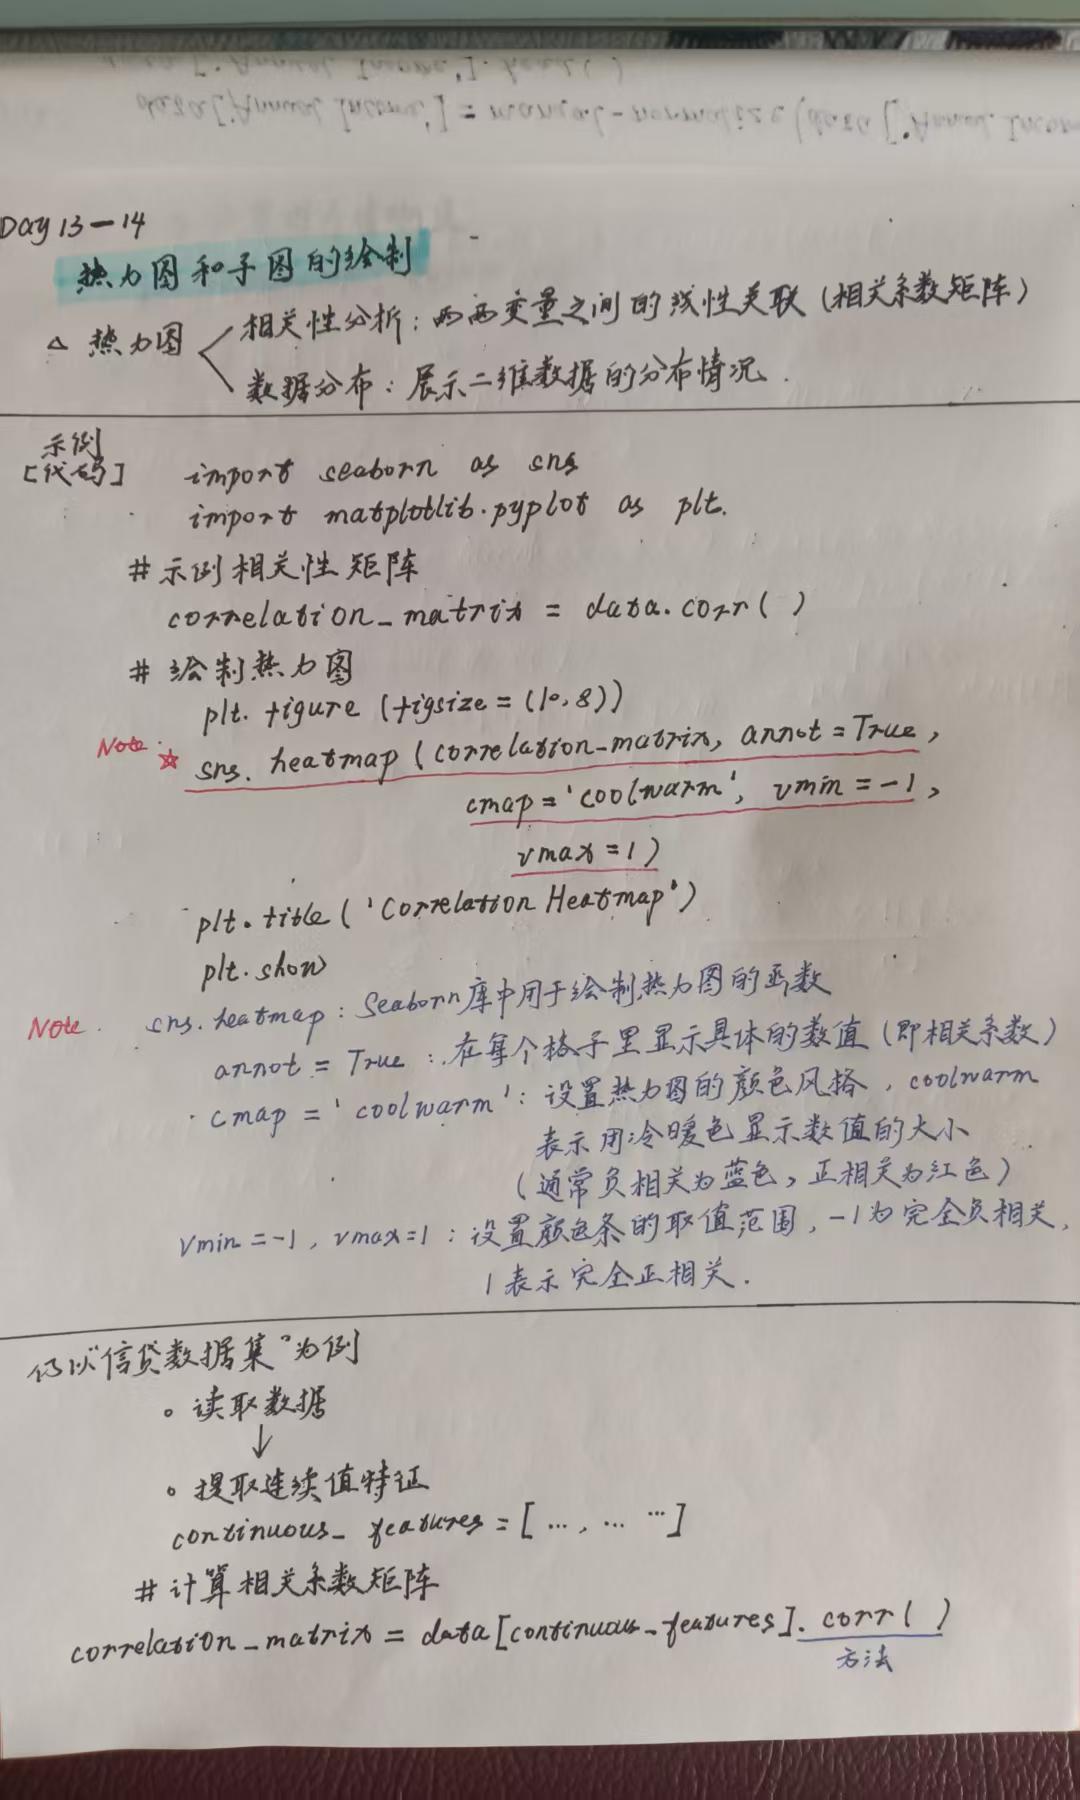 Day 13-14
热力图和子图的绘制
△ 热力图
相关性分析：两两变量之间的线性关联（相关系数矩阵）
数据分布：展示二维数据的分布情况.
示例
[代码]
import seaborn as sns
import matplotlib.pyplot as plt.
# 示例相关性矩阵
correlation_matrix = data.corr( )
# 绘制热力图
plt.figure (figsize = (10,8))
Note. ☆ sns.heatmap (correlation_matrix, annot = True,
cmap = 'coolwarm', vmin = -1,
vmax = 1)
plt.title ('Correlation Heatmap')
plt.show
Note. sns.heatmap : Seaborn库中用于绘制热力图的函数
annot = True : 在每个格子里显示具体的数值（即相关系数）
cmap = 'coolwarm' : 设置热力图的颜色风格，coolwarm
表示用冷暖色显示数值的大小
（通常负相关为蓝色，正相关为红色）
vmin = -1, vmax = 1 : 设置颜色条的取值范围，-1为完全负相关，
1表示完全正相关.
仍以"信贷数据集"为例
。读取数据
↓
。提取连续值特征
continuous_features = [ ..., ... ... ]
# 计算相关系数矩阵
correlation_matrix = data[continuous_features].corr( )
方法